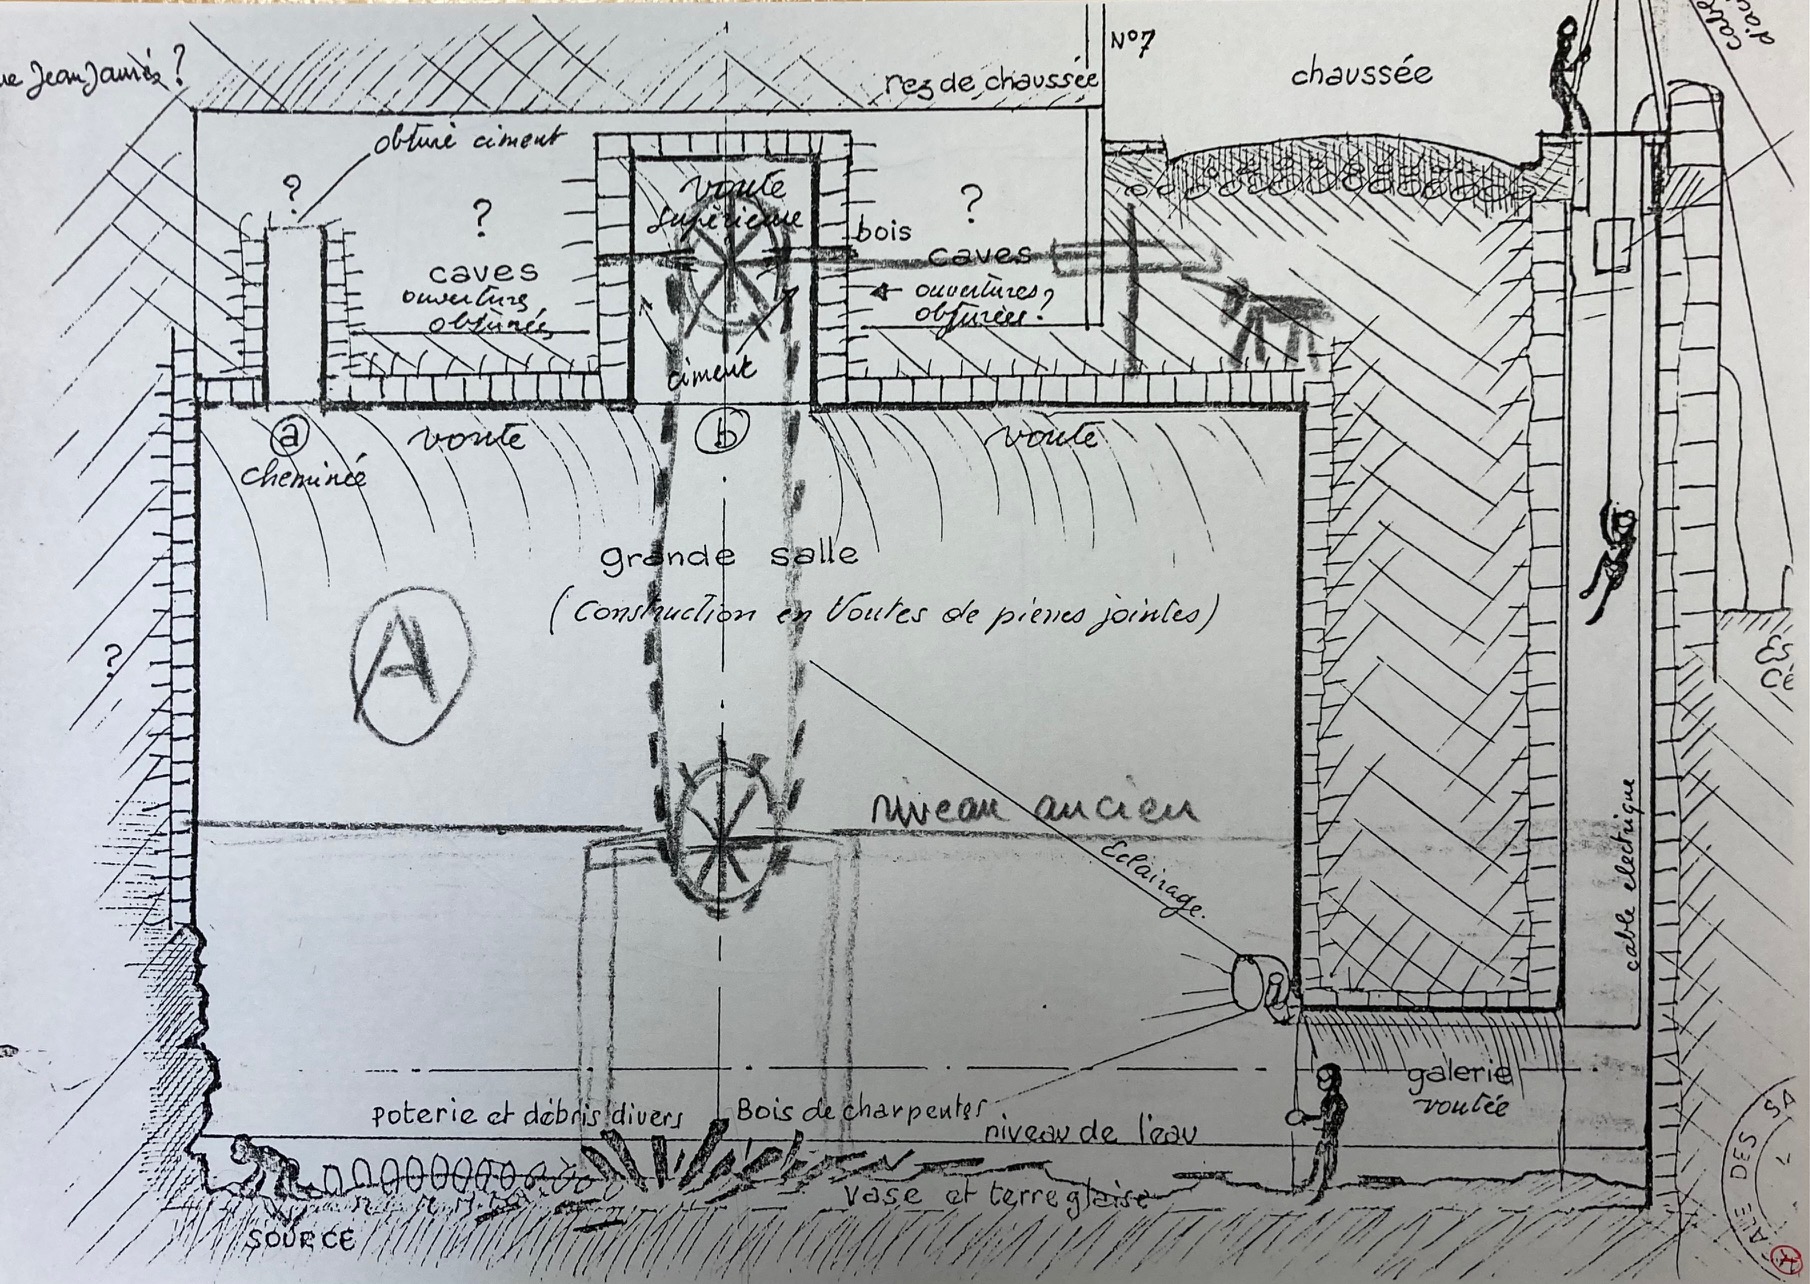 Jean Jaurès ?
N°7
rez de chaussée
chaussée
cable
obturé ciment
?
?
?
voute
supérieure
bois
caves
ouvertures
obturées
caves
ouvertures ?
obturées
ciment
a
voute
b
voute
cheminée
grande salle
(Construction en Voutes de pierres jointes)
A
?
niveau ancien
Eclairage
cable electrique
galerie
voutée
poterie et débris divers
Bois de charpentes
niveau de l'eau
vase et terre glaise
SOURCE
DES SA